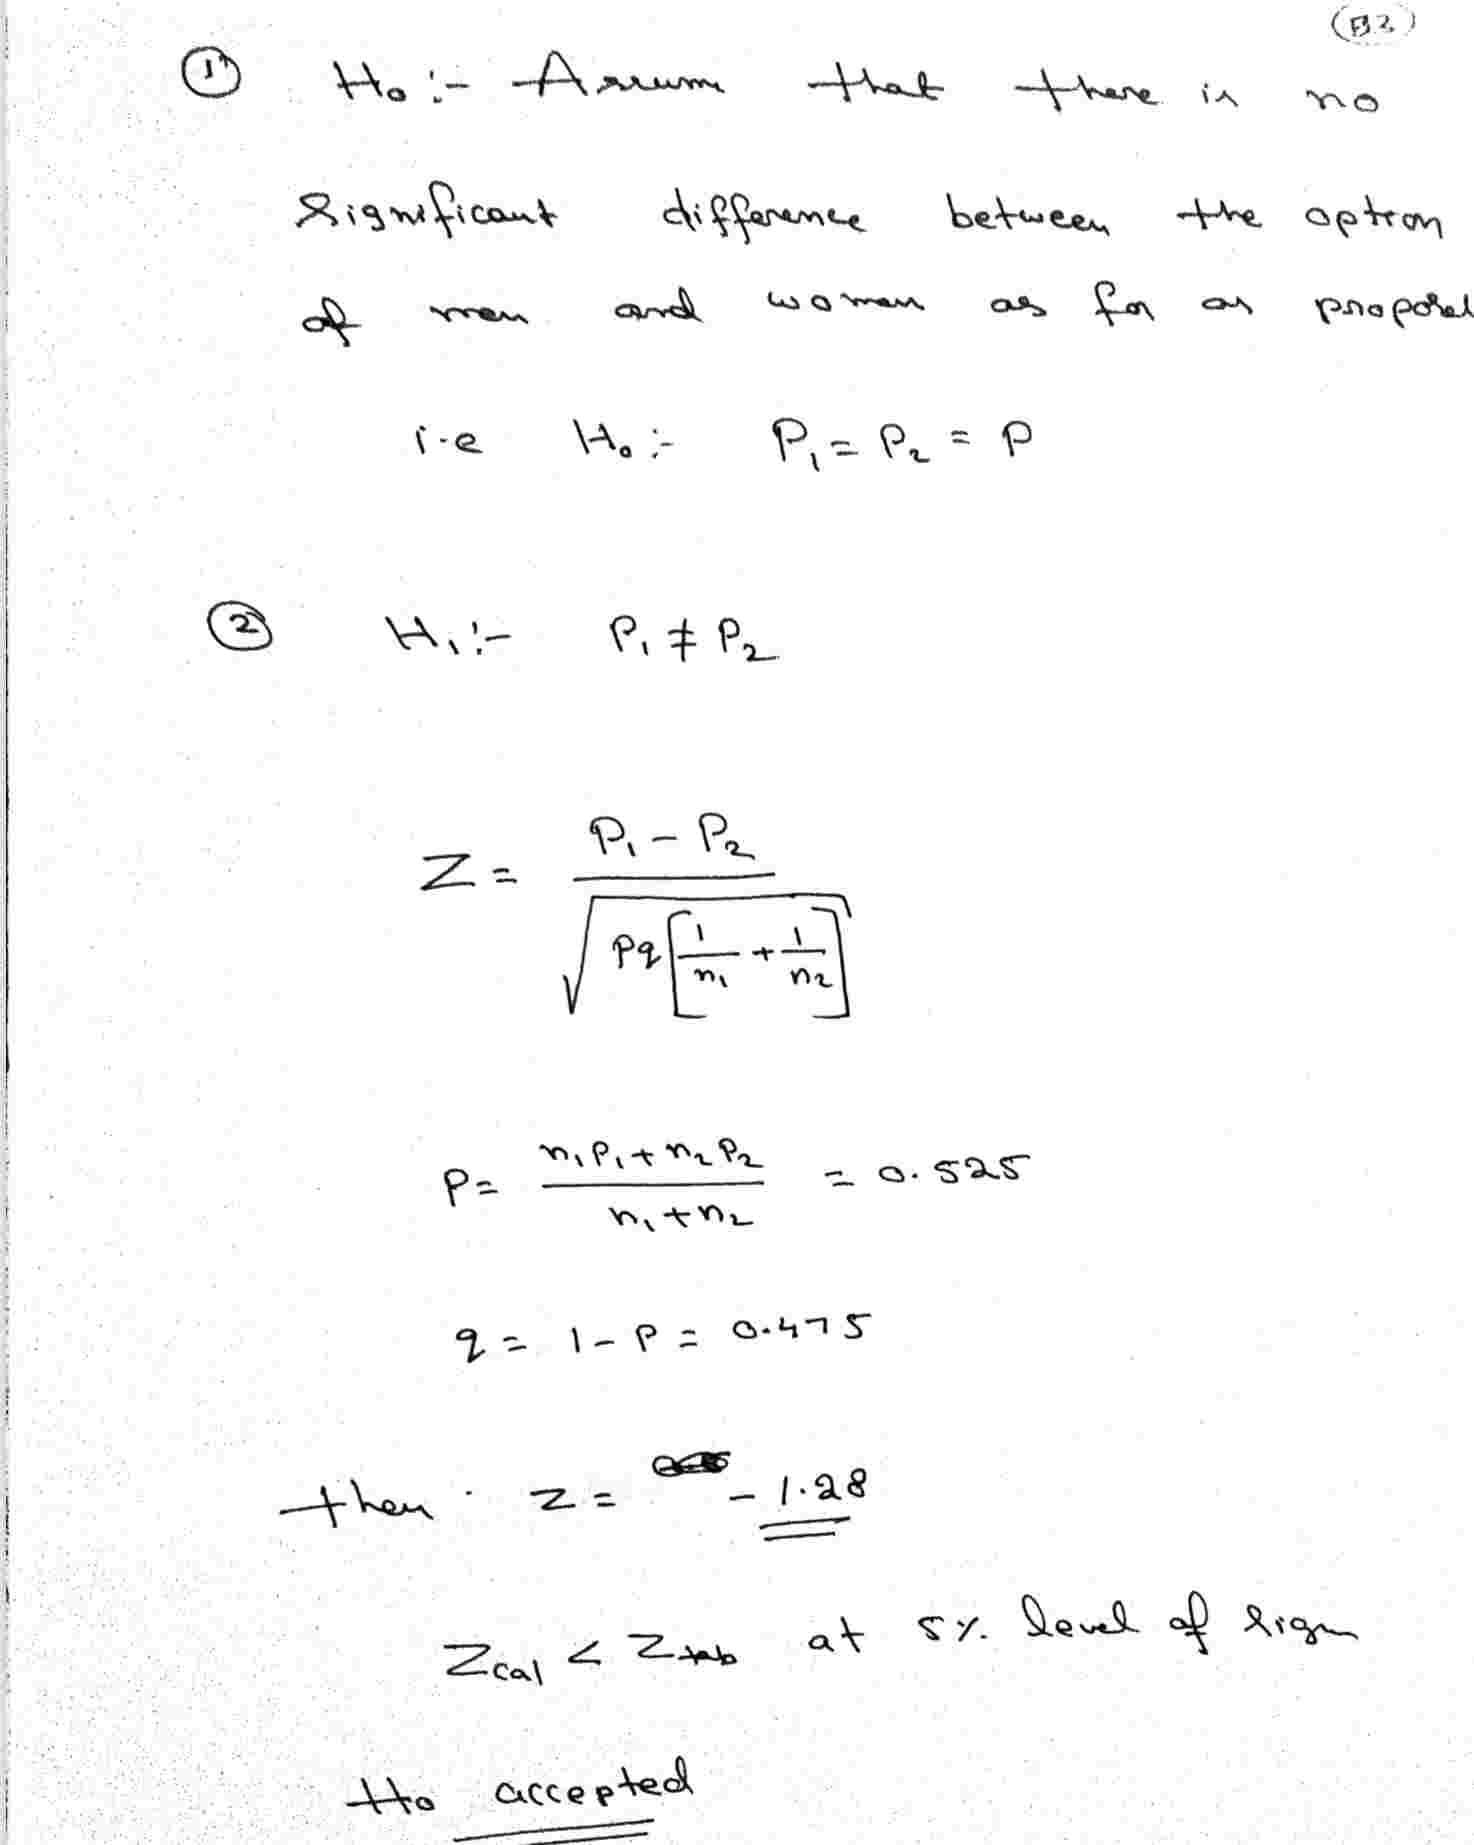 (B3)
① H₀ :- Assum that there is no
significant difference between the option
of men and women as for as proposal
i.e H₀ :- P₁ = P₂ = P
② H₁ :- P₁ ≠ P₂
Z = P₁ - P₂ / √(pq[1/n₁ + 1/n₂])
P = n₁P₁ + n₂P₂ / n₁ + n₂ = 0.525
q = 1 - P = 0.475
then Z = - 1.28
Zcal < Ztab at 5% level of sign
H₀ accepted